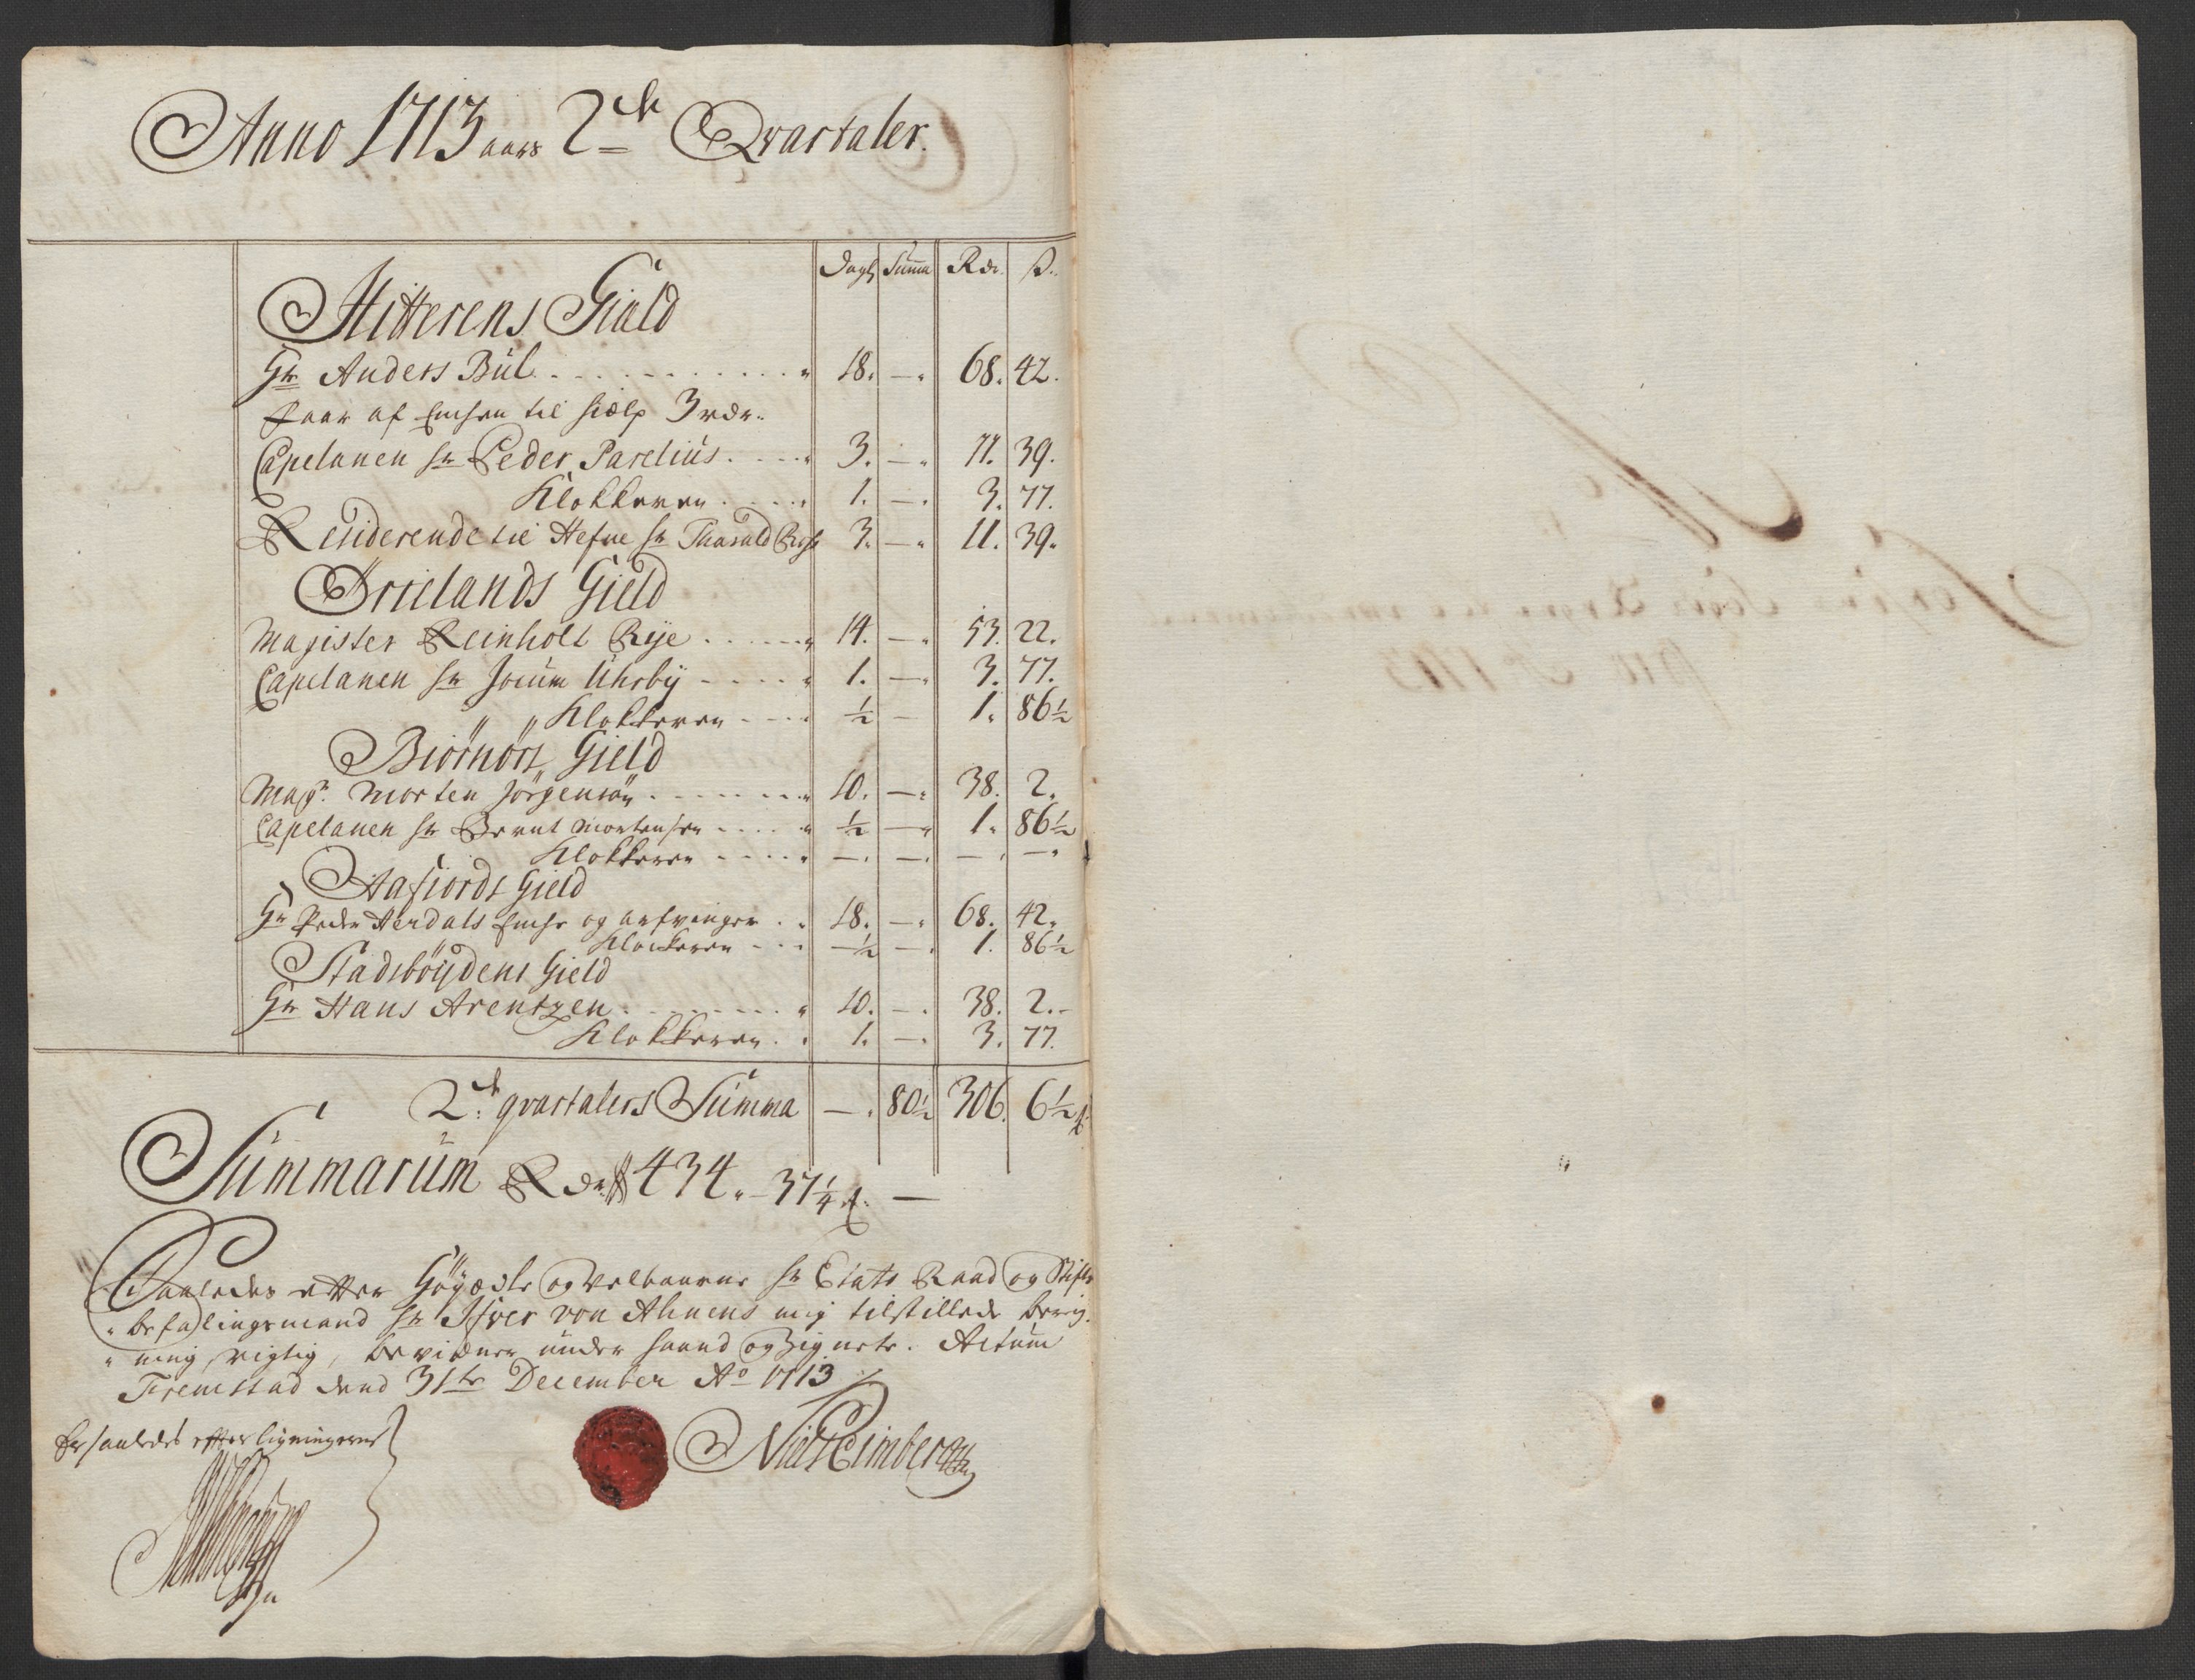 Anno 1713 aars 2de Qvartaler.
Dagl Summa Rdr. ß.
Hitterens Gield
Hr Anders Bül 18. — 68. 42.
Faar af Enchen til hielp 3 rdr.
Capelanen hr Peder Parelius 3. — 11. 39.
Klokkeren 1. — 3. 77.
Residerende til Hefne hr Tharald 3. — 11. 39.
Ørielands Gield
Magister Reinholt Rÿe 14. — 53. 22.
Capelanen hr Jocum Uhrbÿ 1. — 3. 77.
Klokkeren ½ — 1. 86½
Biørnørs Gield
Magr. Morten Jörgensön 10. — 38. 2.
Capelanen hr Bernt Mortensen ½ — 1. 86½
Klokkeren — — — —
Aafiords Gield
Hr Peder Herdals Enche og arfvinger 18. — 68. 42.
Klockeren — ½ — 1. 86½
Stadsböÿdens Gield
Hr Hans Arentzen 10. — 38. 2. -
Klokkeren 1. — 3. 77.
2de qvartalers Summa — 80½ 306. 6½ ß
Summarum Rdr 434. - 37¼ ß. —
Saaledes efter Höÿædle og Velbaarne hr Etats Raad og Stifts
befalingsmand hr Ifver von Ahnens mig tilstillede bereg-
ning rigtig, bevidner under haand og Zignete. Actum
Tremstad dend 31te December Ao 1713
Er saaledes efter ligningerne
Niels Eimbert